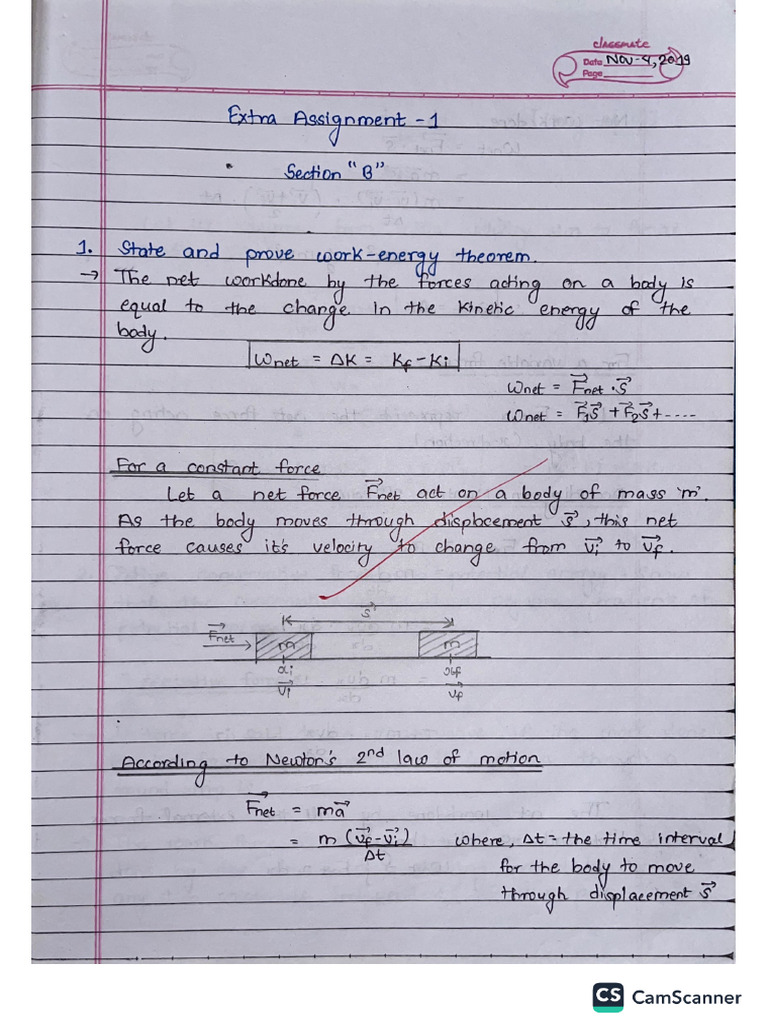 classmate
Date Nov-4, 2019
Page
Extra Assignment -1
Section "B"
1. State and prove work-energy theorem.
→ The net workdone by the forces acting on a body is
equal to the change in the kinetic energy of the
body.
Wnet = ΔK = Kf - Ki
Wnet = F⃗net · s⃗
Wnet = F⃗1s⃗ + F⃗2s⃗ + ----
For a constant force
Let a net force F⃗net act on a body of mass 'm'.
As the body moves through displacement s⃗, this net
force causes it's velocity to change from v⃗i to v⃗f.
s⃗
F⃗net
m m
xi xf
v⃗i v⃗f
According to Newton's 2nd law of motion
F⃗net = ma⃗
= m (v⃗f - v⃗i) / Δt where, Δt = the time interval
for the body to move
through displacement s⃗
CS CamScanner